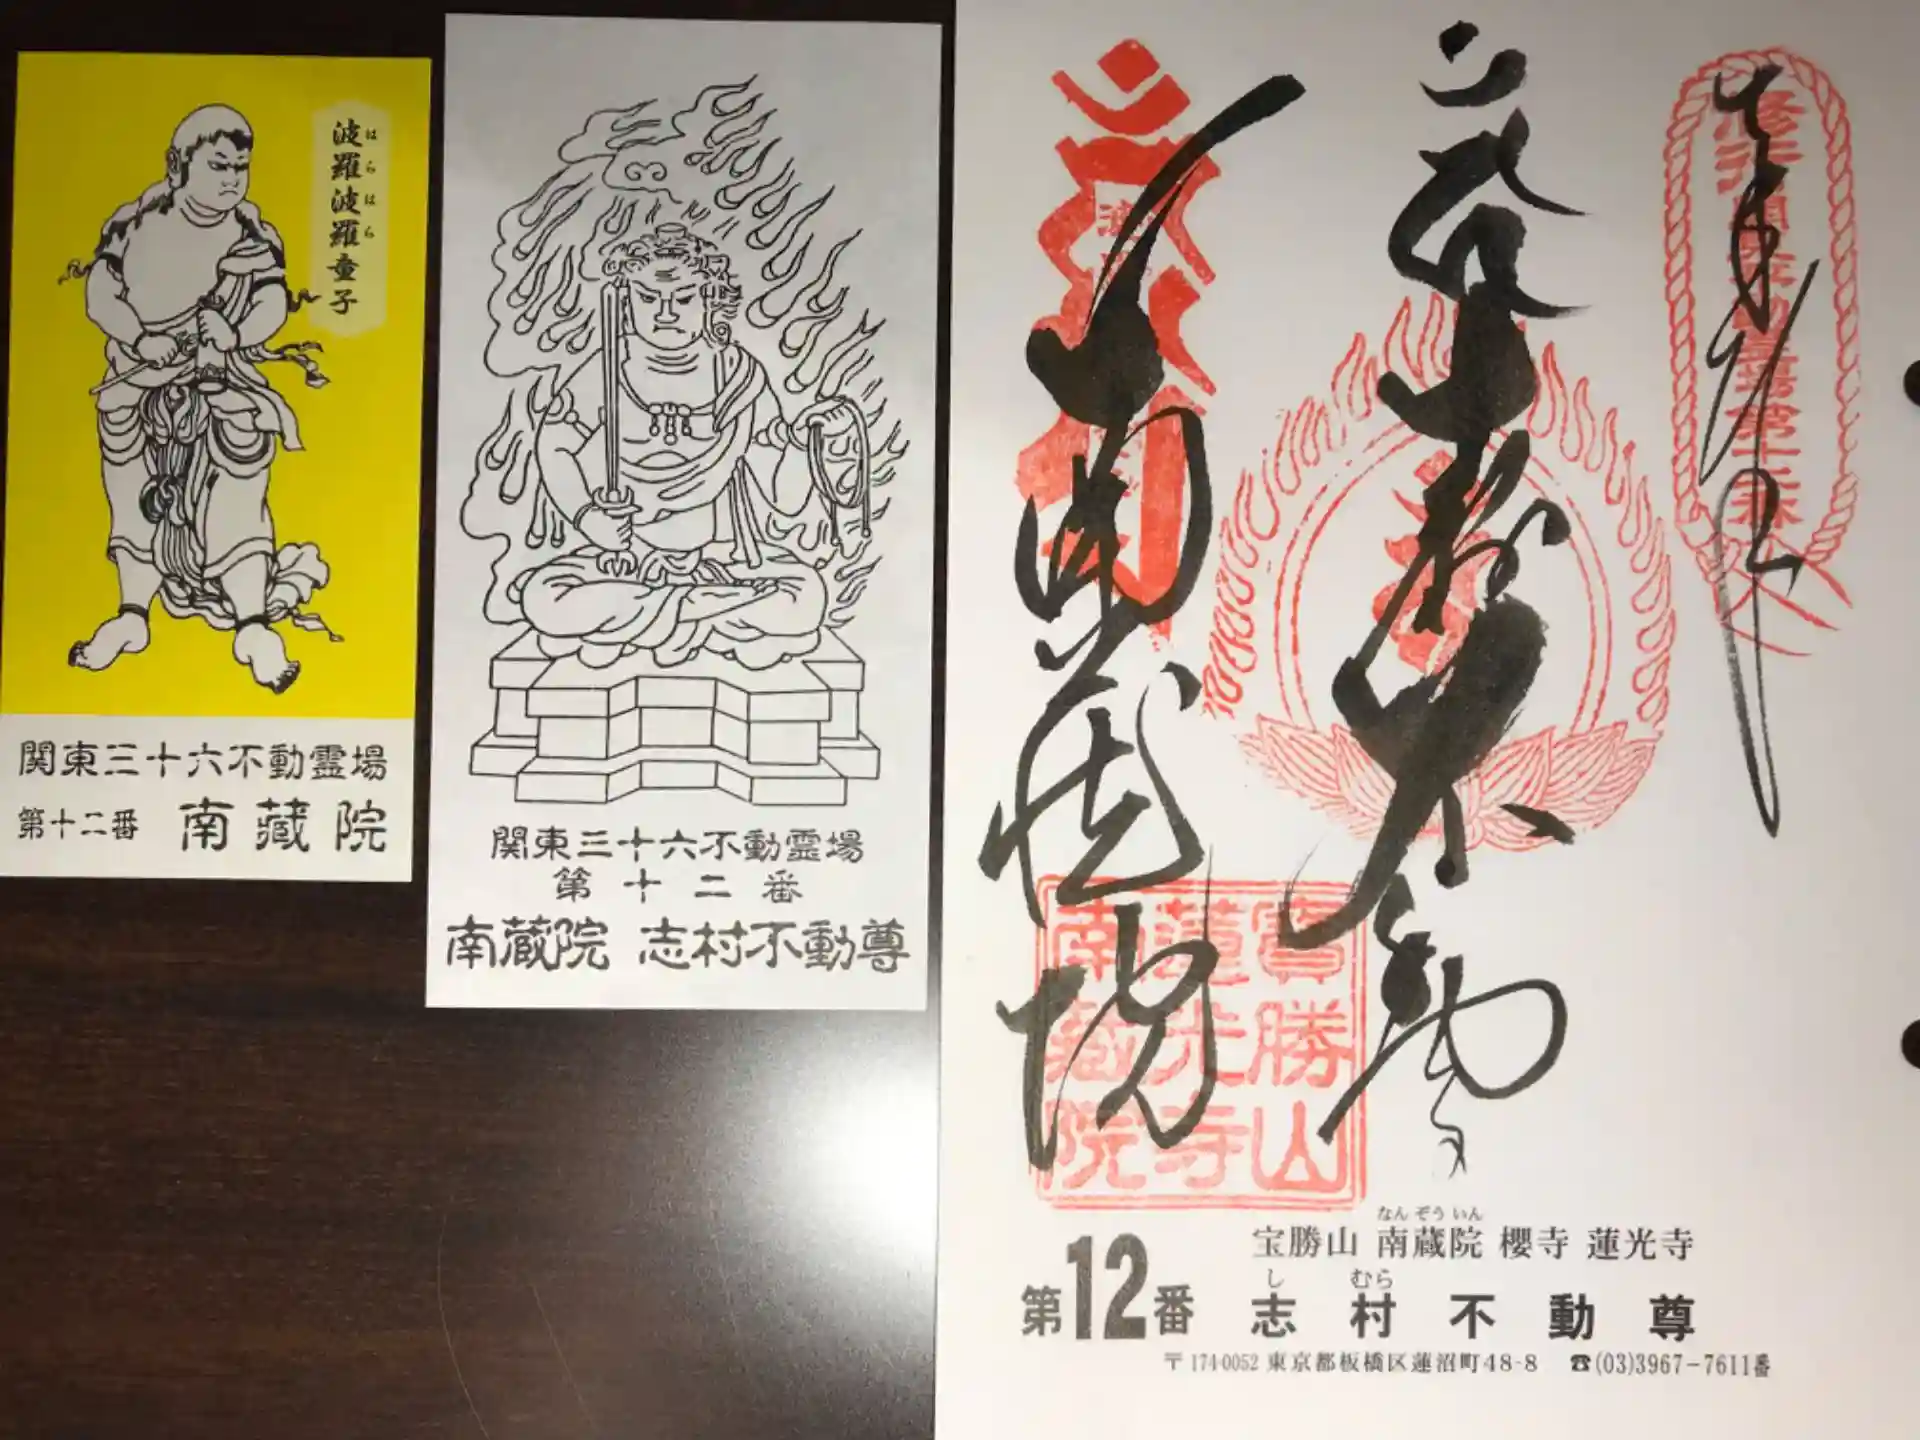 波羅波羅童子
はらはら
関東三十六不動霊場
第十二番 南蔵院
関東三十六不動霊場
第十二番
南蔵院 志村不動尊
奉拝
志村不動
南蔵院
寶勝山
蓮光寺
南蔵院
なんぞういん
宝勝山 南蔵院 櫻寺 蓮光寺
しむら
第12番 志村不動尊
〒174-0052 東京都板橋区蓮沼町48-8 ☎(03)3967-7611番